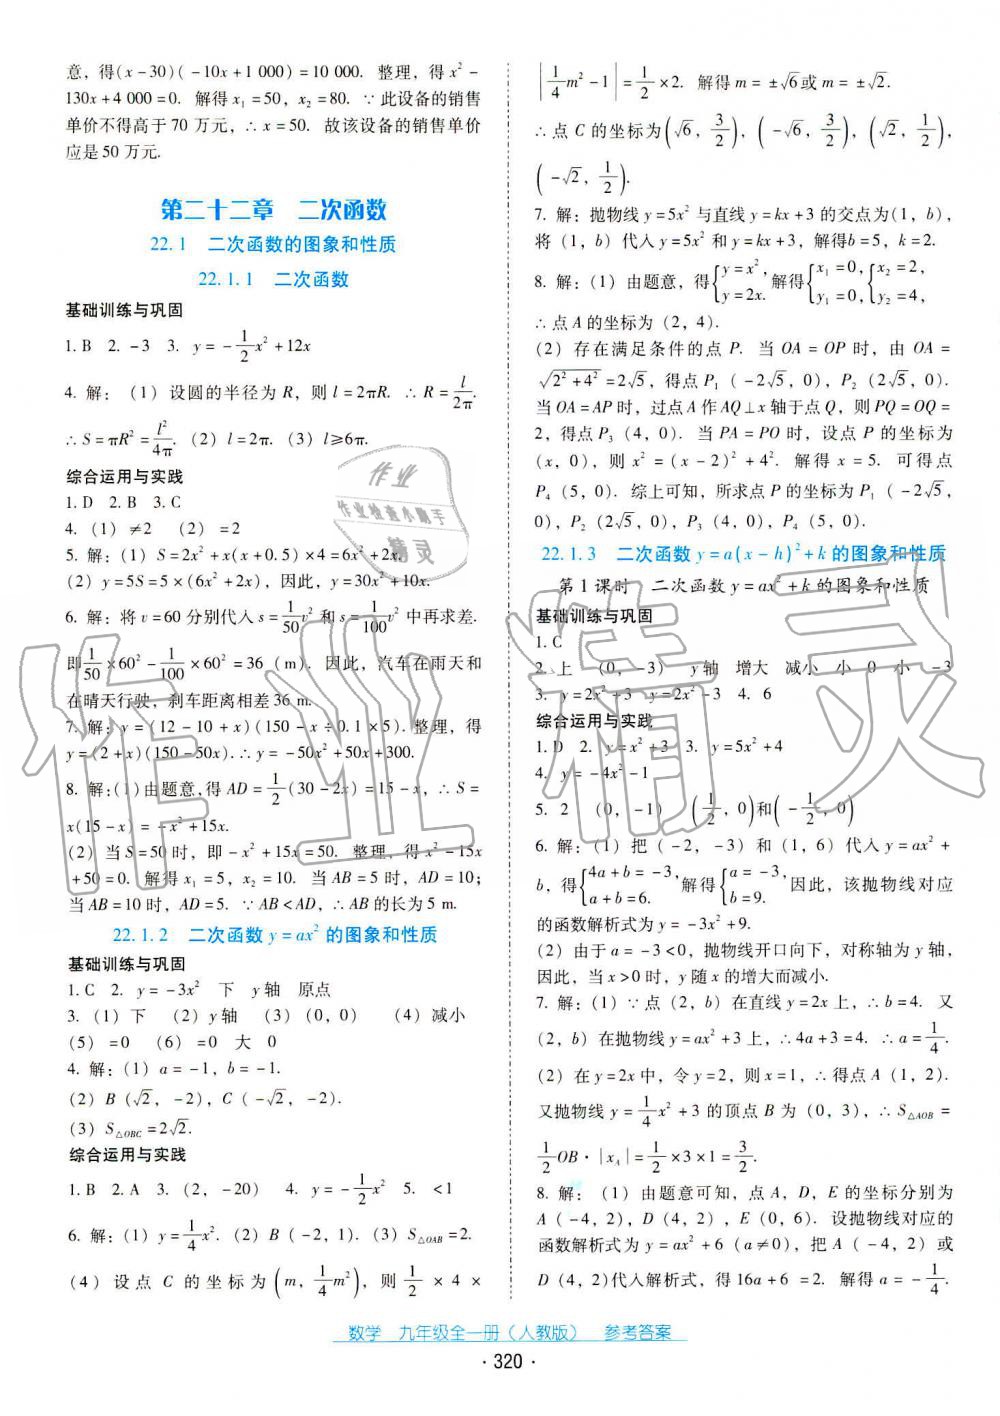 意，得(x-30)(-10x+1 000)=10 000. 整理，得 x²-
130x+4 000=0. 解得 x₁=50，x₂=80. ∵此设备的销售
单价不得高于 70 万元，∴x=50. 故该设备的销售单价
应是 50 万元.
第二十二章 二次函数
22.1 二次函数的图象和性质
22.1.1 二次函数
基础训练与巩固
1. B 2. -3 3. y=-1/2x²+12x
4. 解：（1）设圆的半径为 R，则 l=2πR. ∴R=l/2π.
∴S=πR²=l²/4π.（2）l=2π.（3）l≥6π.
综合运用与实践
1. D 2. B 3. C
4.（1）≠2 （2）=2
5. 解：（1）S=2x²+x(x+0.5)×4=6x²+2x.
（2）y=5S=5×(6x²+2x)，因此，y=30x²+10x.
6. 解：将 v=60 分别代入 s=1/50v² 和 s=1/100v² 中再求差.
即 1/50×60²-1/100×60²=36（m）. 因此，汽车在雨天和
在晴天行驶，刹车距离相差 36 m.
7. 解：y=(12-10+x)(150-x÷0.1×5). 整理，得
y=(2+x)(150-50x). ∴y=-50x²+50x+300.
8. 解：（1）由题意，得 AD=1/2(30-2x)=15-x，∴S=
x(15-x)=-x²+15x.
（2）当 S=50 时，即-x²+15x=50. 整理，得 x²-15x
+50=0. 解得 x₁=5，x₂=10. 当 AB=5 时，AD=10；
当 AB=10 时，AD=5. ∵AB<AD，∴AB 的长为 5 m.
22.1.2 二次函数 y=ax² 的图象和性质
基础训练与巩固
1. C 2. y=-3x² 下 y 轴 原点
3.（1）下 （2）y 轴 （3）(0，0) （4）减小
（5）=0 （6）=0 大 0
4. 解：（1）a=-1，b=-1.
（2）B(√2，-2)，C(-√2，-2).
（3）S△OBC=2√2.
综合运用与实践
1. B 2. A 3.（2，-20） 4. y=-1/2x² 5. <1
6. 解：（1）y=1/4x².（2）B(-2，1).（3）S△OAB=2.
（4）设点 C 的坐标为(m，1/4m²)，则 1/2×4×
|1/4m²-1|=1/2×2. 解得 m=±√6或 m=±√2.
∴点 C 的坐标为(√6，3/2)，(-√6，3/2)，(√2，1/2)，
(-√2，1/2).
7. 解：抛物线 y=5x² 与直线 y=kx+3 的交点为(1，b)，
将（1，b）代入 y=5x² 和 y=kx+3，解得b=5，k=2.
8. 解：（1）由题意，得{y=x²，y=2x. 解得{x₁=0，y₁=0，{x₂=2，y₂=4，
∴点 A 的坐标为（2，4）.
（2）存在满足条件的点 P. 当 OA=OP 时，由 OA=
√2²+4²=2√5，得点 P₁（-2√5，0），P₂（2√5，0）.
当 OA=AP 时，过点 A 作 AQ⊥x 轴于点 Q，则 PQ=OQ=
2，得点 P₃（4，0）. 当 PA=PO 时，设点 P 的坐标为
（x，0），则 x²=（x-2）²+4². 解得 x=5. 可得点
P₄（5，0）. 综上可知，所求点 P 的坐标为 P₁（-2√5，
0），P₂（2√5，0），P₃（4，0），P₄（5，0）.
22.1.3 二次函数 y=a(x-h)²+k 的图象和性质
第 1 课时 二次函数 y=ax²+k 的图象和性质
基础训练与巩固
1. C
2. 上 （0，-3） y 轴 增大 减小 小 0 小 -3
3. y=2x²+3 y=2x²-3 4. 6
综合运用与实践
1. D 2. y=x²+3 3. y=5x²+4
4. y=-4x²-1
5. 2 （0，-1） (1/2，0)和(-1/2，0)
6. 解：（1）把（-2，-3）和（1，6）代入 y=ax²+
b，得{4a+b=-3，a+b=6. 解得{a=-3，b=9. 因此，该抛物线对应
的函数解析式为 y=-3x²+9.
（2）由于 a=-3<0，抛物线开口向下，对称轴为 y 轴，
因此，当 x>0 时，y 随 x 的增大而减小.
7. 解：（1）∵点（2，b）在直线 y=2x 上，∴b=4. 又
（2，b）在抛物线 y=ax²+3 上，∴4a+3=4. ∴a=1/4.
（2）在 y=2x 中，令 y=2，则 x=1，∴得点 A（1，2）.
又抛物线 y=1/4x²+3 的顶点 B 为（0，3），∴S△AOB=
1/2OB·|xA|=1/2×3×1=3/2.
8. 解：（1）由题意可知，点 A，D，E 的坐标分别为
A（-4，2），D（4，2），E（0，6）. 设抛物线对应的
函数解析式为 y=ax²+6（a≠0），把 A（-4，2）或
D（4，2)代入解析式，得 16a+6=2. 解得 a=-1/4.
数学 九年级全一册（人教版） 参考答案
·320·
作业
作业检查小助手
精灵
作业精灵